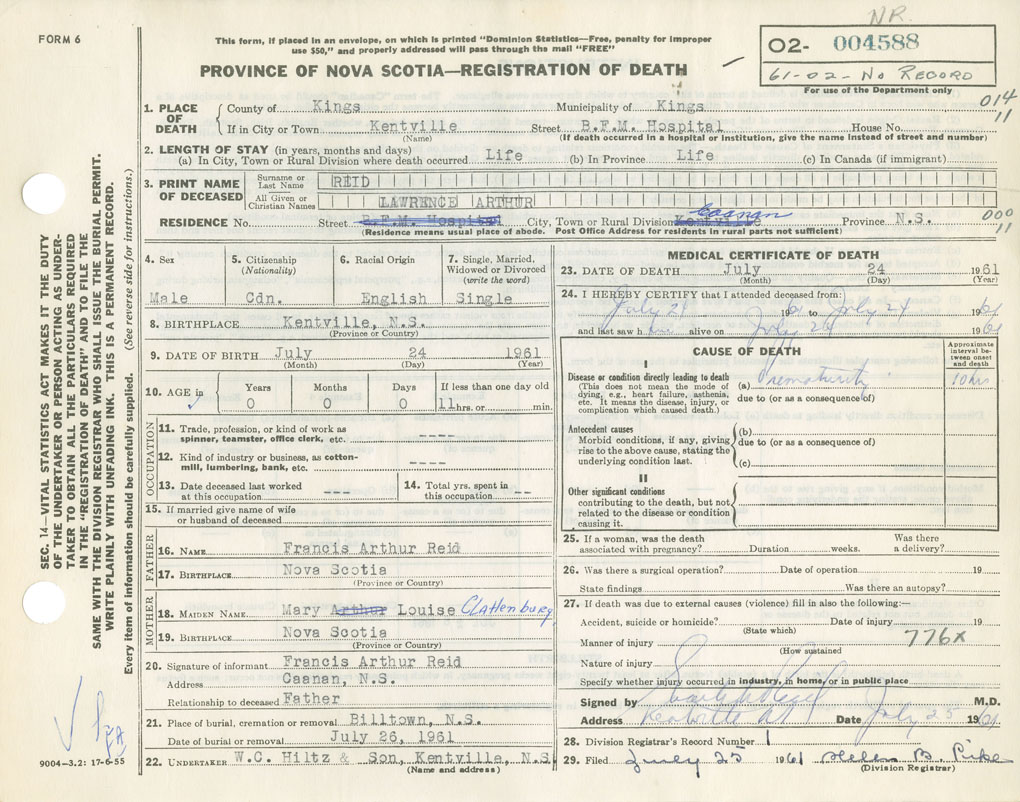 NR.
FORM 6
This form, if placed in an envelope, on which is printed "Dominion Statistics—Free, penalty for improper
use $50," and properly addressed will pass through the mail "FREE"
O2- 004588
61-02- No Record
For use of the Department only
PROVINCE OF NOVA SCOTIA—REGISTRATION OF DEATH
014
11
1. PLACE OF DEATH County of Kings Municipality of Kings
If in City or Town Kentville Street B.F.M. Hospital House No.
(Name) (If death occurred in a hospital or institution, give the name instead of street and number)
2. LENGTH OF STAY (in years, months and days)
(a) In City, Town or Rural Division where death occurred Life (b) In Province Life (c) In Canada (if immigrant)
3. PRINT NAME OF DECEASED Surname or Last Name REID
All Given or Christian Names LAWRENCE ARTHUR
RESIDENCE No. Street B.F.M. Hospital City, Town or Rural Division Kentville Caanan Province N.S.
000
11
(Residence means usual place of abode. Post Office Address for residents in rural parts not sufficient)
4. Sex 5. Citizenship (Nationality) 6. Racial Origin 7. Single, Married, Widowed or Divorced (write the word)
Male Cdn. English Single
8. BIRTHPLACE Kentville, N.S.
(Province or Country)
9. DATE OF BIRTH July 24 1961
(Month) (Day) (Year)
10. AGE in Years Months Days If less than one day old
0 0 0 11 hrs. or min.
OCCUPATION
11. Trade, profession, or kind of work as
spinner, teamster, office clerk, etc. ----
12. Kind of industry or business, as cotton-
mill, lumbering, bank, etc. ----
13. Date deceased last worked at this occupation --- 14. Total yrs. spent in this occupation --
15. If married give name of wife
or husband of deceased
FATHER
16. NAME Francis Arthur Reid
17. BIRTHPLACE Nova Scotia
(Province or Country)
MOTHER
18. MAIDEN NAME Mary Arthur Louise Clattenburg
19. BIRTHPLACE Nova Scotia
(Province or Country)
20. Signature of informant Francis Arthur Reid
Address Caanan, N.S.
Relationship to deceased Father
21. Place of burial, cremation or removal Billtown, N.S.
Date of burial or removal July 26, 1961
22. UNDERTAKER W.C. Hiltz & Son, Kentville, N.S
(Name and address)
MEDICAL CERTIFICATE OF DEATH
23. DATE OF DEATH July 24 1961
(Month) (Day) (Year)
24. I HEREBY CERTIFY that I attended deceased from:
July 21 1961 to July 24 1961
and last saw him alive on July 24 1961
CAUSE OF DEATH
Approximate interval between onset and death
I
Disease or condition directly leading to death (a) Prematurity 10 hrs
(This does not mean the mode of due to (or as a consequence of)
dying, e.g., heart failure, asthenia,
etc. It means the disease, injury, or
complication which caused death.)
Antecedent causes (b)
Morbid conditions, if any, giving due to (or as a consequence of)
rise to the above cause, stating the
underlying condition last. (c)
II
Other significant conditions
contributing to the death, but not
related to the disease or condition
causing it.
25. If a woman, was the death Was there
associated with pregnancy? Duration weeks. a delivery?
26. Was there a surgical operation? Date of operation 19
State findings Was there an autopsy?
27. If death was due to external causes (violence) fill in also the following:—
Accident, suicide or homicide? Date of injury 19
(State which)
Manner of injury 776X
(How sustained
Nature of injury
Specify whether injury occurred in industry, in home, or in public place
Signed by M.D.
Address Kentville NS Date July 25 1961
28. Division Registrar's Record Number 1
29. Filed July 25 1961 Helen B. Pike
(Division Registrar)
SEC. 14—VITAL STATISTICS ACT MAKES IT THE DUTY
OF THE UNDERTAKER OR PERSON ACTING AS UNDER-
TAKER TO OBTAIN ALL THE PARTICULARS REQUIRED
IN THE "REGISTRATION OF DEATH" AND TO FILE THE
SAME WITH THE DIVISION REGISTRAR WHO SHALL ISSUE THE BURIAL PERMIT.
WRITE PLAINLY WITH UNFADING INK. THIS IS A PERMANENT RECORD.
Every item of information should be carefully supplied. (See reverse side for instructions.)
9004-3.2: 17-6-55